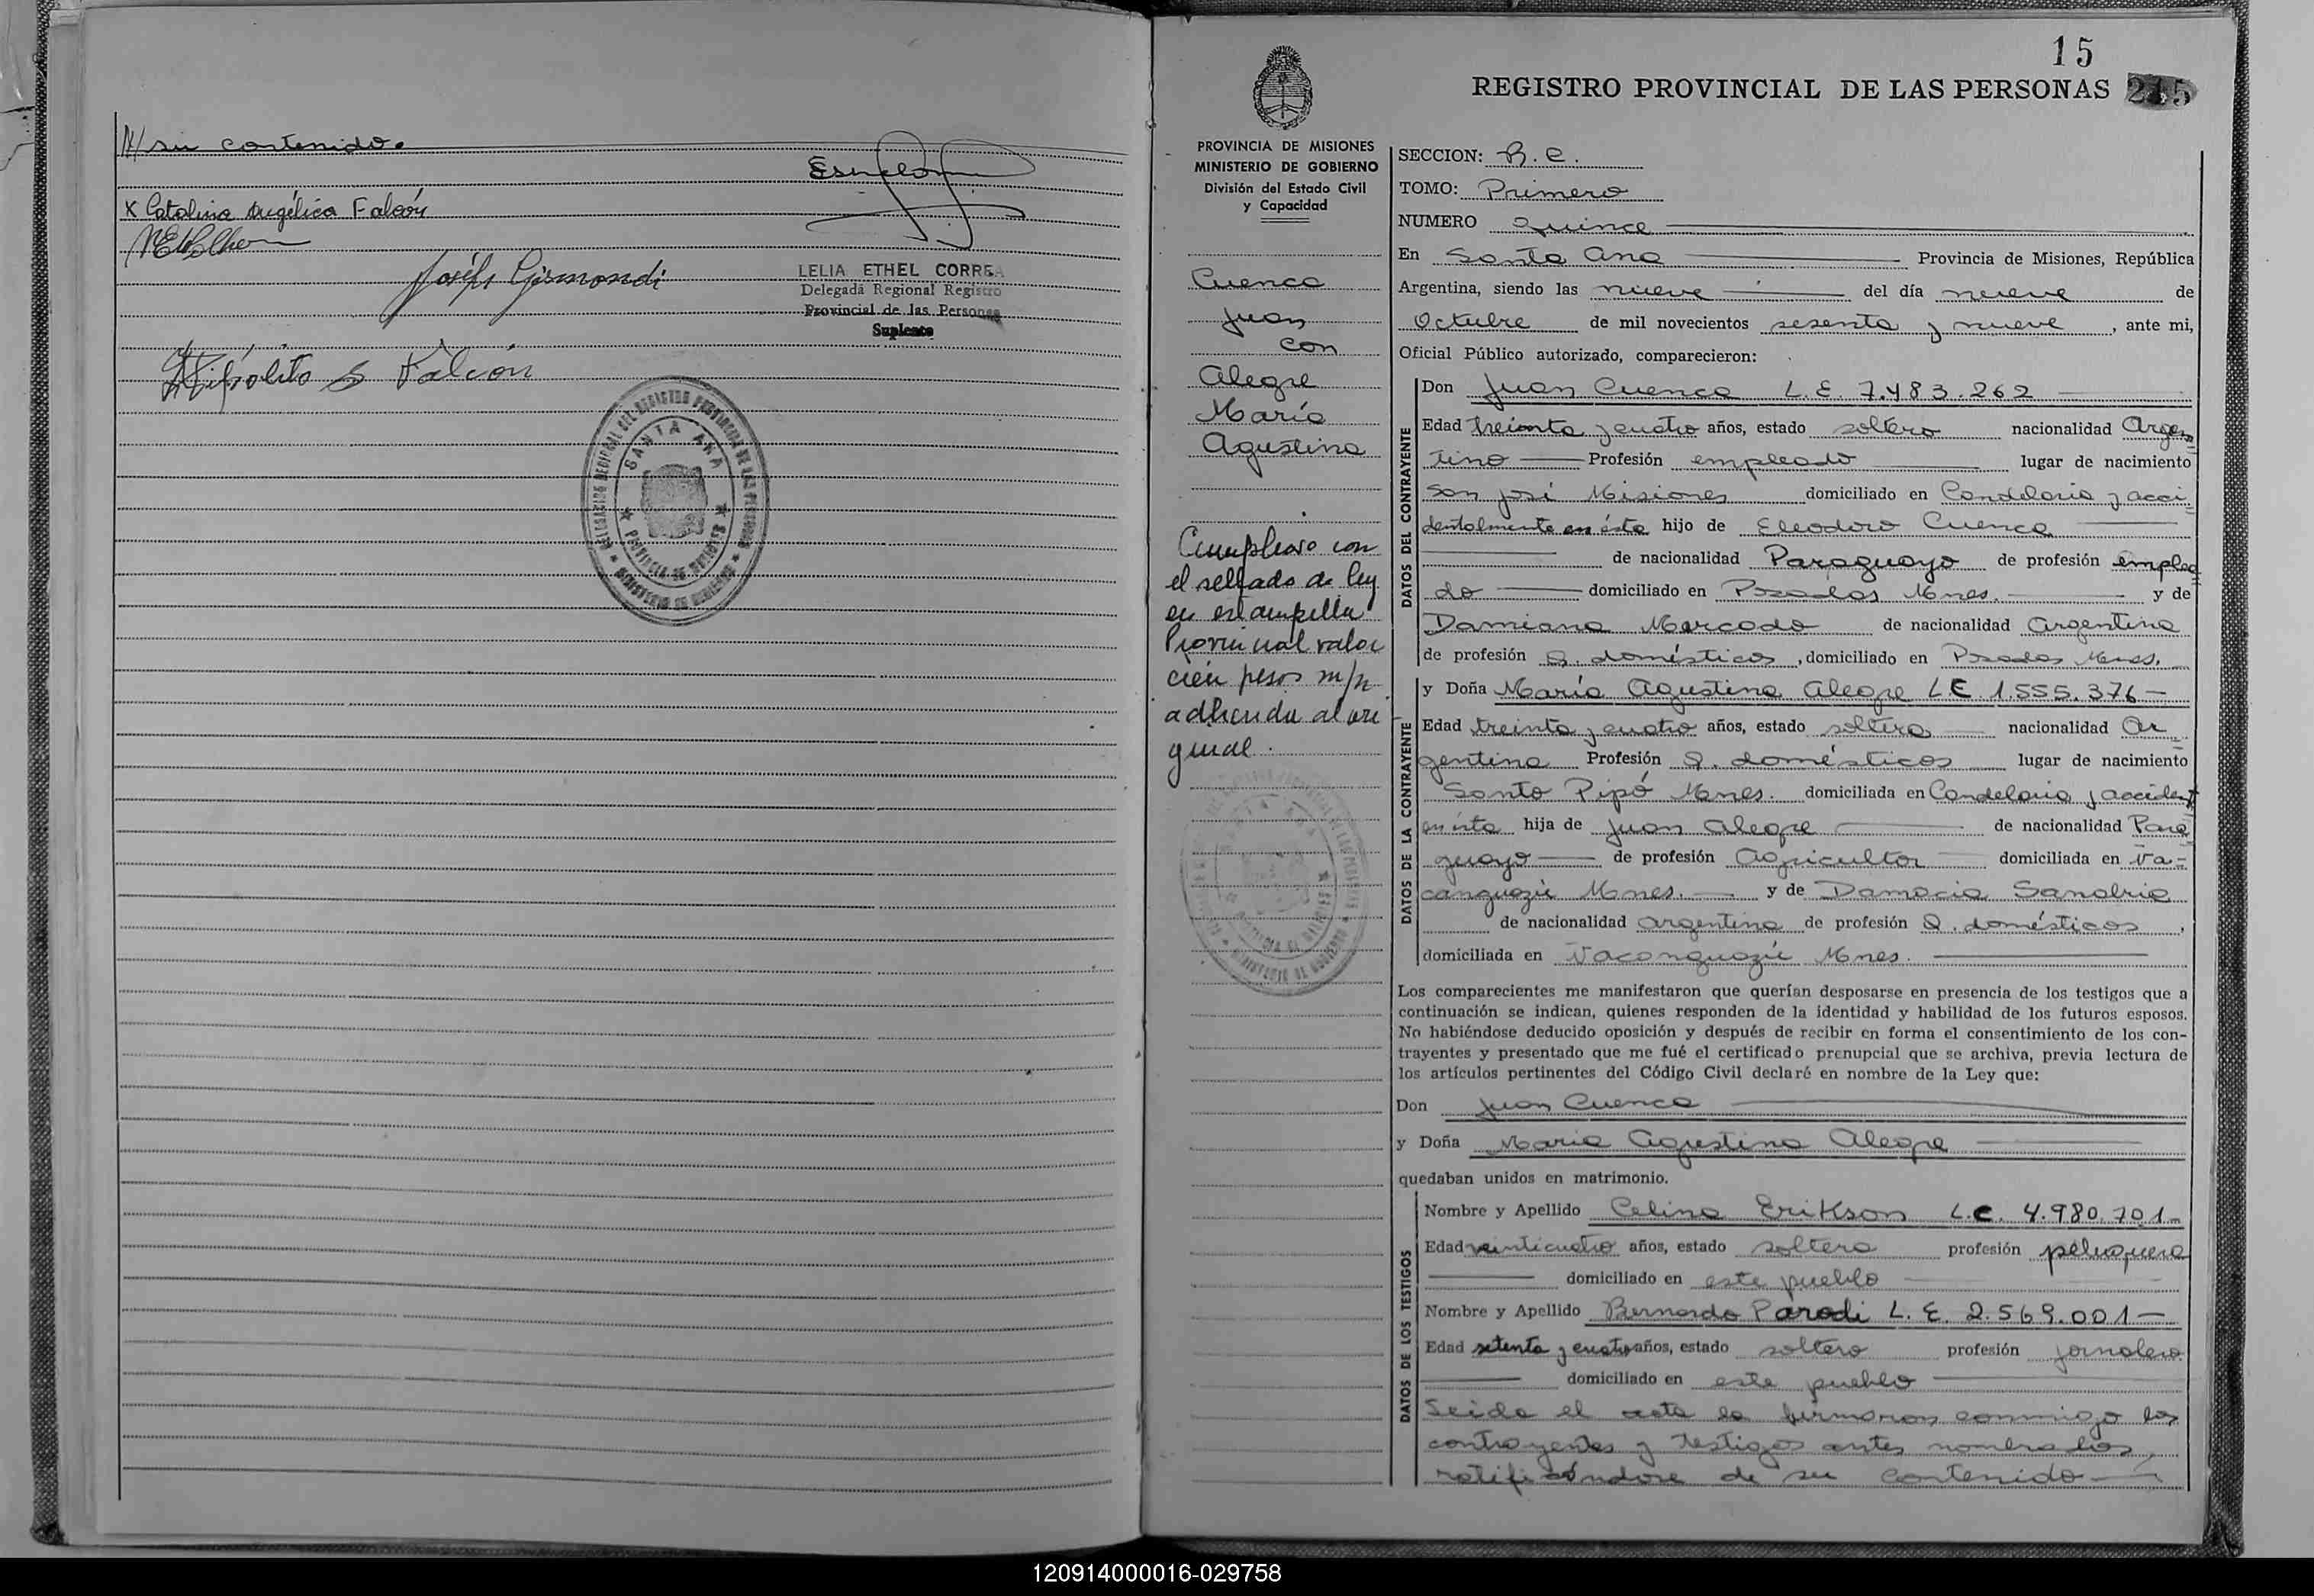 su contenido.
x Catalina Angélica Falcón
Joséfs Gismondi
LELIA ETHEL CORREA
Delegada Regional Registro
Provincial de las Personas
Suplente
Hipólito S Falcón
SANTA ANA
PROVINCIA DE MISIONES
15
REGISTRO PROVINCIAL DE LAS PERSONAS 215
PROVINCIA DE MISIONES
MINISTERIO DE GOBIERNO
División del Estado Civil
y Capacidad
Cuenca
Juan
con
Alegre
María
Agustina
Cumplese con
el sellado de ley
en estampilla
Provincial valor
cien pesos m/n
adherida al ori
ginal.
SECCION: R. C.
TOMO: Primero
NUMERO Quince
En Santa Ana Provincia de Misiones, República
Argentina, siendo las nueve del día nueve de
Octubre de mil novecientos sesenta y nueve, ante mi,
Oficial Público autorizado, comparecieron:
DATOS DEL CONTRAYENTE
Don Juan Cuenca L.E. 7.483.262
Edad treinta y cuatro años, estado soltero nacionalidad Argen
tino Profesión empleado lugar de nacimiento
San José Misiones domiciliado en Candelaria y acci
dentalmente en ésta hijo de Eleodoro Cuenca
de nacionalidad Paraguayo de profesión emplea
do domiciliado en Posadas Mnes. y de
Damiana Mercado de nacionalidad argentina
de profesión Q. domésticos, domiciliado en Posadas Mnes.
DATOS DE LA CONTRAYENTE
y Doña María Agustina Alegre L.C 1.555.376-
Edad treinta y cuatro años, estado soltera nacionalidad Ar
gentina Profesión Q. domésticos lugar de nacimiento
Santo Pipó Mnes. domiciliada en Candelaria y accident
en ésta hija de Juan Alegre de nacionalidad Para
guayo de profesión Agricultor domiciliada en Va-
canguazú Mnes. y de Damacia Sanabria
de nacionalidad argentina de profesión Q. domésticos,
domiciliada en Vacanguazú Mnes.
Los comparecientes me manifestaron que querían desposarse en presencia de los testigos que a
continuación se indican, quienes responden de la identidad y habilidad de los futuros esposos.
No habiéndose deducido oposición y después de recibir en forma el consentimiento de los con-
trayentes y presentado que me fué el certificado prenupcial que se archiva, previa lectura de
los artículos pertinentes del Código Civil declaré en nombre de la Ley que:
Don Juan Cuenca
y Doña Maria Agustina Alegre
quedaban unidos en matrimonio.
DATOS DE LOS TESTIGOS
Nombre y Apellido Celina Erikson L.C. 4.980.701-
Edad veinticuatro años, estado soltera profesión peluquera
domiciliado en este pueblo
Nombre y Apellido Bernardo Parodi L. E. 2.569.001-
Edad setenta y cuatro años, estado soltero profesión jornalero
domiciliado en este pueblo
Leida el acta la firmaron conmigo los
contrayentes y testigos antes nombrados,
ratificándose de su contenido
120914000016-029758